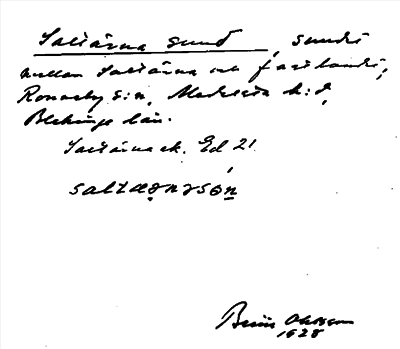 Saltärna sund, sundet
mellan Saltärna och fastlandet,
Ronneby s:n, Medelsta h:d,
Blekinge län.
Saltärna ek. Ed 21
1928